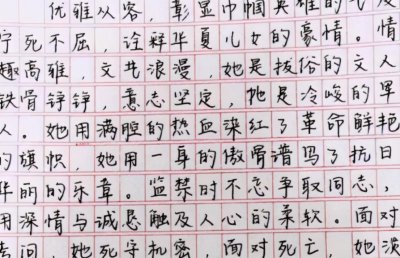 优雅从容，彰显巾帼英雄的气度
宁死不屈，诠释华夏儿女的豪情。情
趣高雅，文共浪漫，她是拔俗的文人
铁骨铮铮，意志坚定，她是冷峻的军
人。她用满腔的热血染红了革命鲜艳
的旗帜，她用一身的傲骨谱写了抗日
华丽的乐章。监禁时不忘争取同志，
用深情与诚恳触及人心的柔软。面对
拷问，她死守机密，面对死亡，她淡